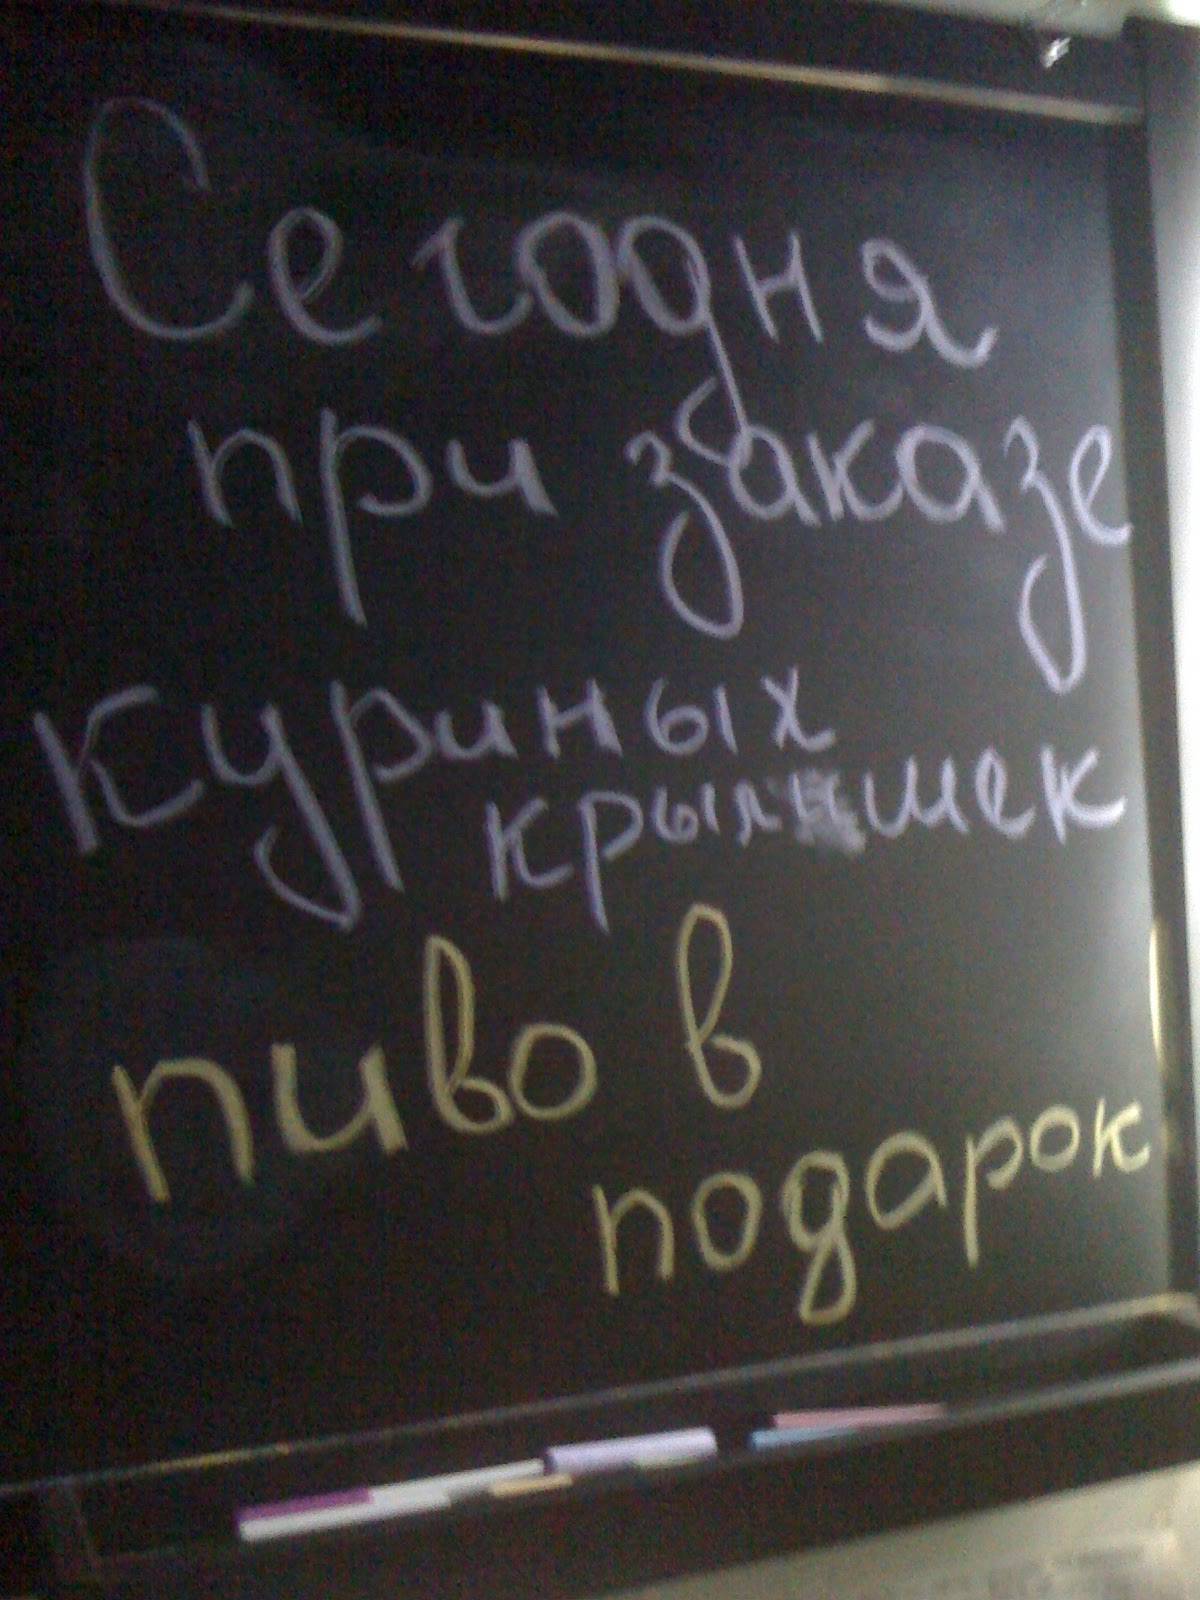 Сегодня
при заказе
куриных
крылышек
пиво в
подарок